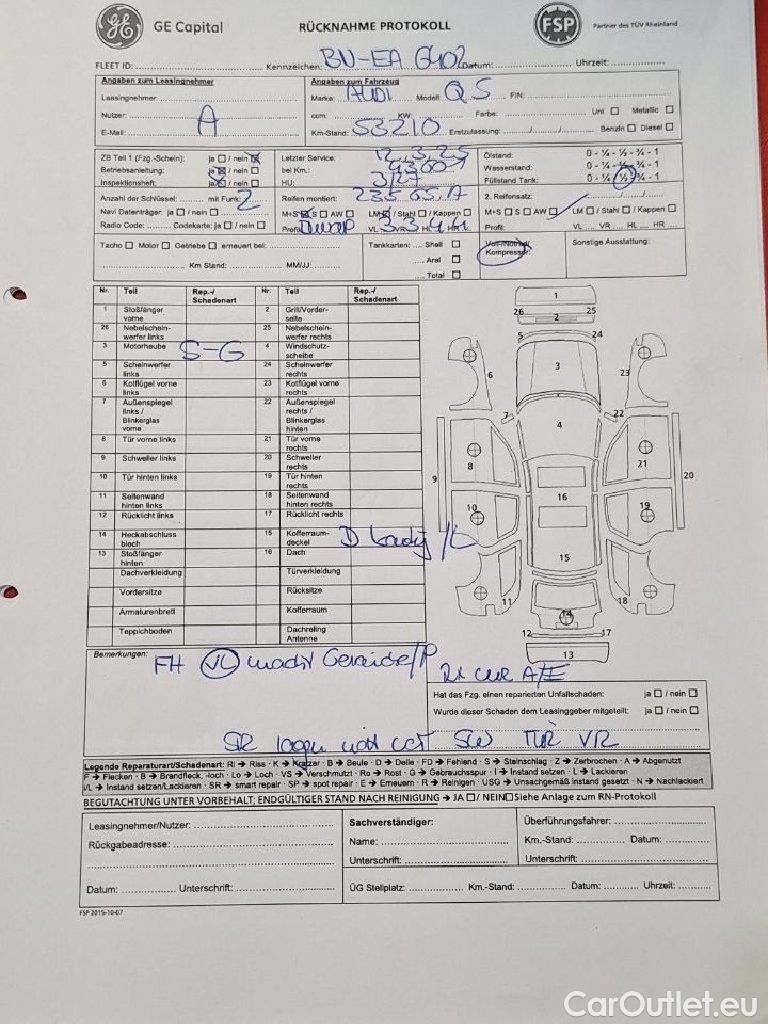 GE Capital RÜCKNAHME PROTOKOLL FSP Partner des TÜV Rheinland
FLEET ID: Kennzeichen: BN-EA 6402 Datum: Uhrzeit:
Angaben zum Leasingnehmer Angaben zum Fahrzeug
Leasingnehmer: Marke: AUDI Modell: Q5 FIN:
Nutzer: A ccm: KW Farbe: Uni □ Metallic □
E-Mail: Km-Stand: 53210 Erstzulassung: / / Benzin □ Diesel □
ZB Teil 1 (Fzg.-Schein): ja □ / nein ☒ Letzter Service: 12.3.25 Ölstand: 0 - ¼ - ½ - ¾ - 1
Betriebsanleitung: ja ☒ / nein □ bei Km.: Wasserstand: 0 - ¼ - ½ - ¾ - 1
Inspektionsheft: ja ☒ / nein □ HU: 3/27 Füllstand Tank: 0 - ¼ - ½ - ¾ - 1
Anzahl der Schlüssel: mit Funk: 2 Reifen montiert: 235 65 2. Reifensatz: / /
Navi Datenträger: ja □ / nein □ M+S ☒ S □ AW □ LM ☒ / Stahl □ / Kappen □ M+S □ S □ AW □ LM □ / Stahl □ / Kappen □
Radio Code: Codekarte: ja □ / nein □ Profil: Dunlop VL 3 VR 3 HL 4 HR 4 Profil: VL VR HL HR
Tacho □ Motor □ Getriebe □ erneuert bei: Tankkarten: Shell □ Voll-/Notrad/ Sonstige Ausstattung:
Aral □ Kompressor:
Km Stand: MM/JJ: Total □
Nr. Teil Rep.-/ Schadenart Nr. Teil Rep.-/ Schadenart
1 Stoßfänger vorne 2 Grill/Vorder-seite
26 Nebelschein-werfer links 25 Nebelschein-werfer rechts
3 Motorhaube S-G 4 Windschutz-scheibe
5 Scheinwerfer links 24 Scheinwerfer rechts
6 Kotflügel vorne links 23 Kotflügel vorne rechts
7 Außenspiegel links / Blinkerglas vorne 22 Außenspiegel rechts / Blinkerglas hinten
8 Tür vorne links 21 Tür vorne rechts
9 Schweller links 20 Schweller rechts
10 Tür hinten links 19 Tür hinten rechts
11 Seitenwand hinten links 18 Seitenwand hinten rechts
12 Rücklicht links 17 Rücklicht rechts
14 Heckabschluss blech 15 Kofferraum-deckel D /L
13 Stoßfänger hinten 16 Dach
Dachverkleidung Türverkleidung
Vordersitze Rücksitze
Armaturenbrett Kofferraum
Teppichboden Dachreling Antenne
1
26 25
2
5 24
6 3 23
7 22
4
8 21
9 20
10 16 19
15
11 18
14
12 17
13
Bemerkungen: FH VL macht Geräusche/P
A/E
Hat das Fzg. einen reparierten Unfallschaden: ja □ / nein □
Wurde dieser Schaden dem Leasinggeber mitgeteilt: ja □ / nein □
SR TÜR VR
Legende Reparaturart/Schadenart: RI → Riss · K → Kratzer · B → Beule · D → Delle · FD → Fehlend · S → Steinschlag · Z → Zerbrochen · A → Abgenutzt
F → Flecken · B → Brandfleck, -loch · Lo → Loch · VS → Verschmutzt · Ro → Rost · G → Gebrauchsspur · I → Instand setzen · L → Lackieren
I/L → Instand setzen/Lackieren · SR → smart repair · SP → spot repair · E → Erneuern · R → Reinigen · USG → Unsachgemäß Instand gesetzt · N → Nachlackiert
BEGUTACHTUNG UNTER VORBEHALT; ENDGÜLTIGER STAND NACH REINIGUNG → JA □ / NEIN □ Siehe Anlage zum RN-Protokoll
Leasingnehmer/Nutzer: Sachverständiger: Überführungsfahrer:
Rückgabeadresse: Name: Km.-Stand: Datum:
Unterschrift: Unterschrift:
Datum: Unterschrift: ÜG Stellplatz: Km.-Stand: Datum: Uhrzeit:
FSP 2015-10-07
CarOutlet.eu